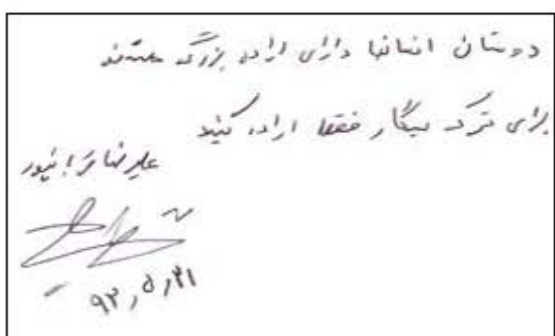 دوستان انسانها دارای اراده بزرگ هستند
برای ترک سیگار فقط اراده کنید
علیرضا
۹۳٫۵٫۳۱